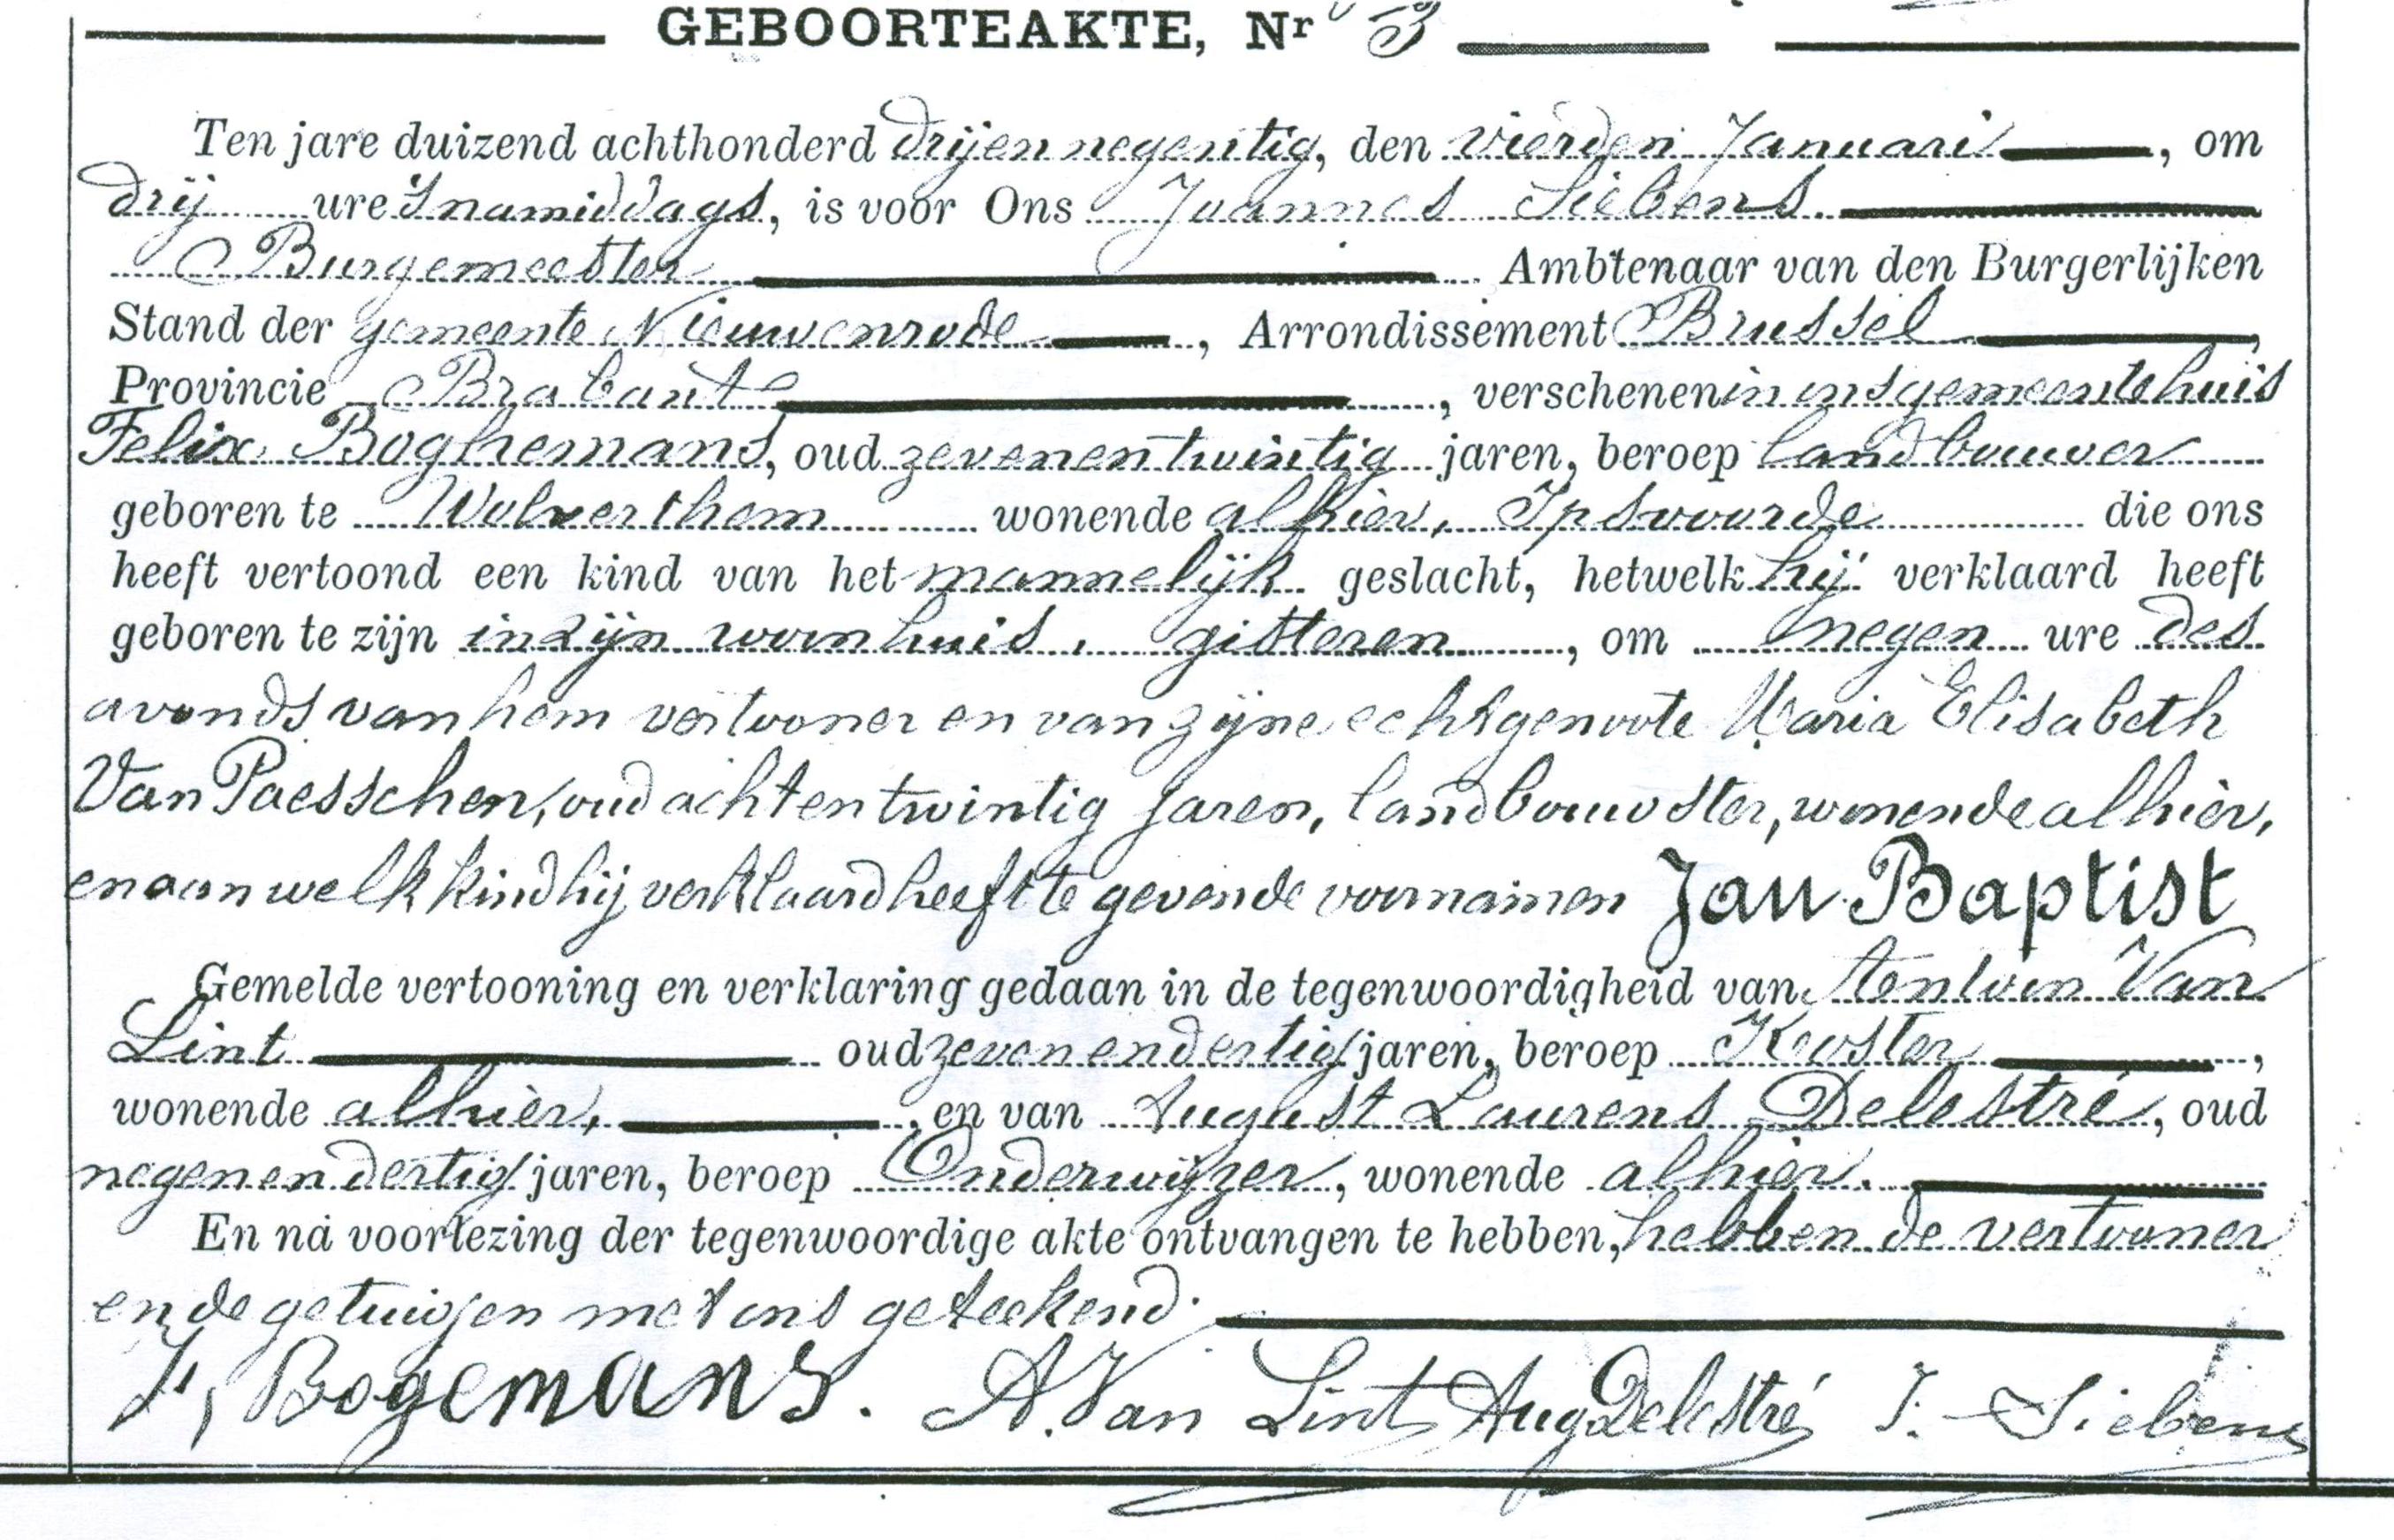 GEBOORTEAKTE, Nr 3
Ten jare duizend achthonderd drijen negentig, den vierden Januari, om
drij ure 's namiddags, is voor Ons Joannes Siebens.
Burgemeester Ambtenaar van den Burgerlijken
Stand der gemeente Nieuwenrode, Arrondissement Brussel,
Provincie Brabant, verschenen in ons gemeentehuis
Felix Boghemans, oud zevenentwintig jaren, beroep landbouwer
geboren te Wolverthem wonende alhier, Ipsvoorde die ons
heeft vertoond een kind van het mannelijk geslacht, hetwelk hij verklaard heeft
geboren te zijn in zijn woonhuis, gisteren, om negen ure des
avonds van hem vertooner en van zijne echtgenoote Maria Elisabeth
Van Paesschen, oud achtentwintig jaren, landbouwster, wonende alhier,
en aan welk kind hij verklaard heeft te geven de voornamen Jan Baptist
Gemelde vertooning en verklaring gedaan in de tegenwoordigheid van Antoon Van
Lint oud zevenendertig jaren, beroep Koster,
wonende alhier, en van August Laurens Delestré, oud
negenendertig jaren, beroep Onderwijzer, wonende alhier.
En na voorlezing der tegenwoordige akte ontvangen te hebben, hebben de vertooner
en de getuigen met ons geteekend.
F, Bogemans. A. Van Lint Aug Delestré J. Siebens